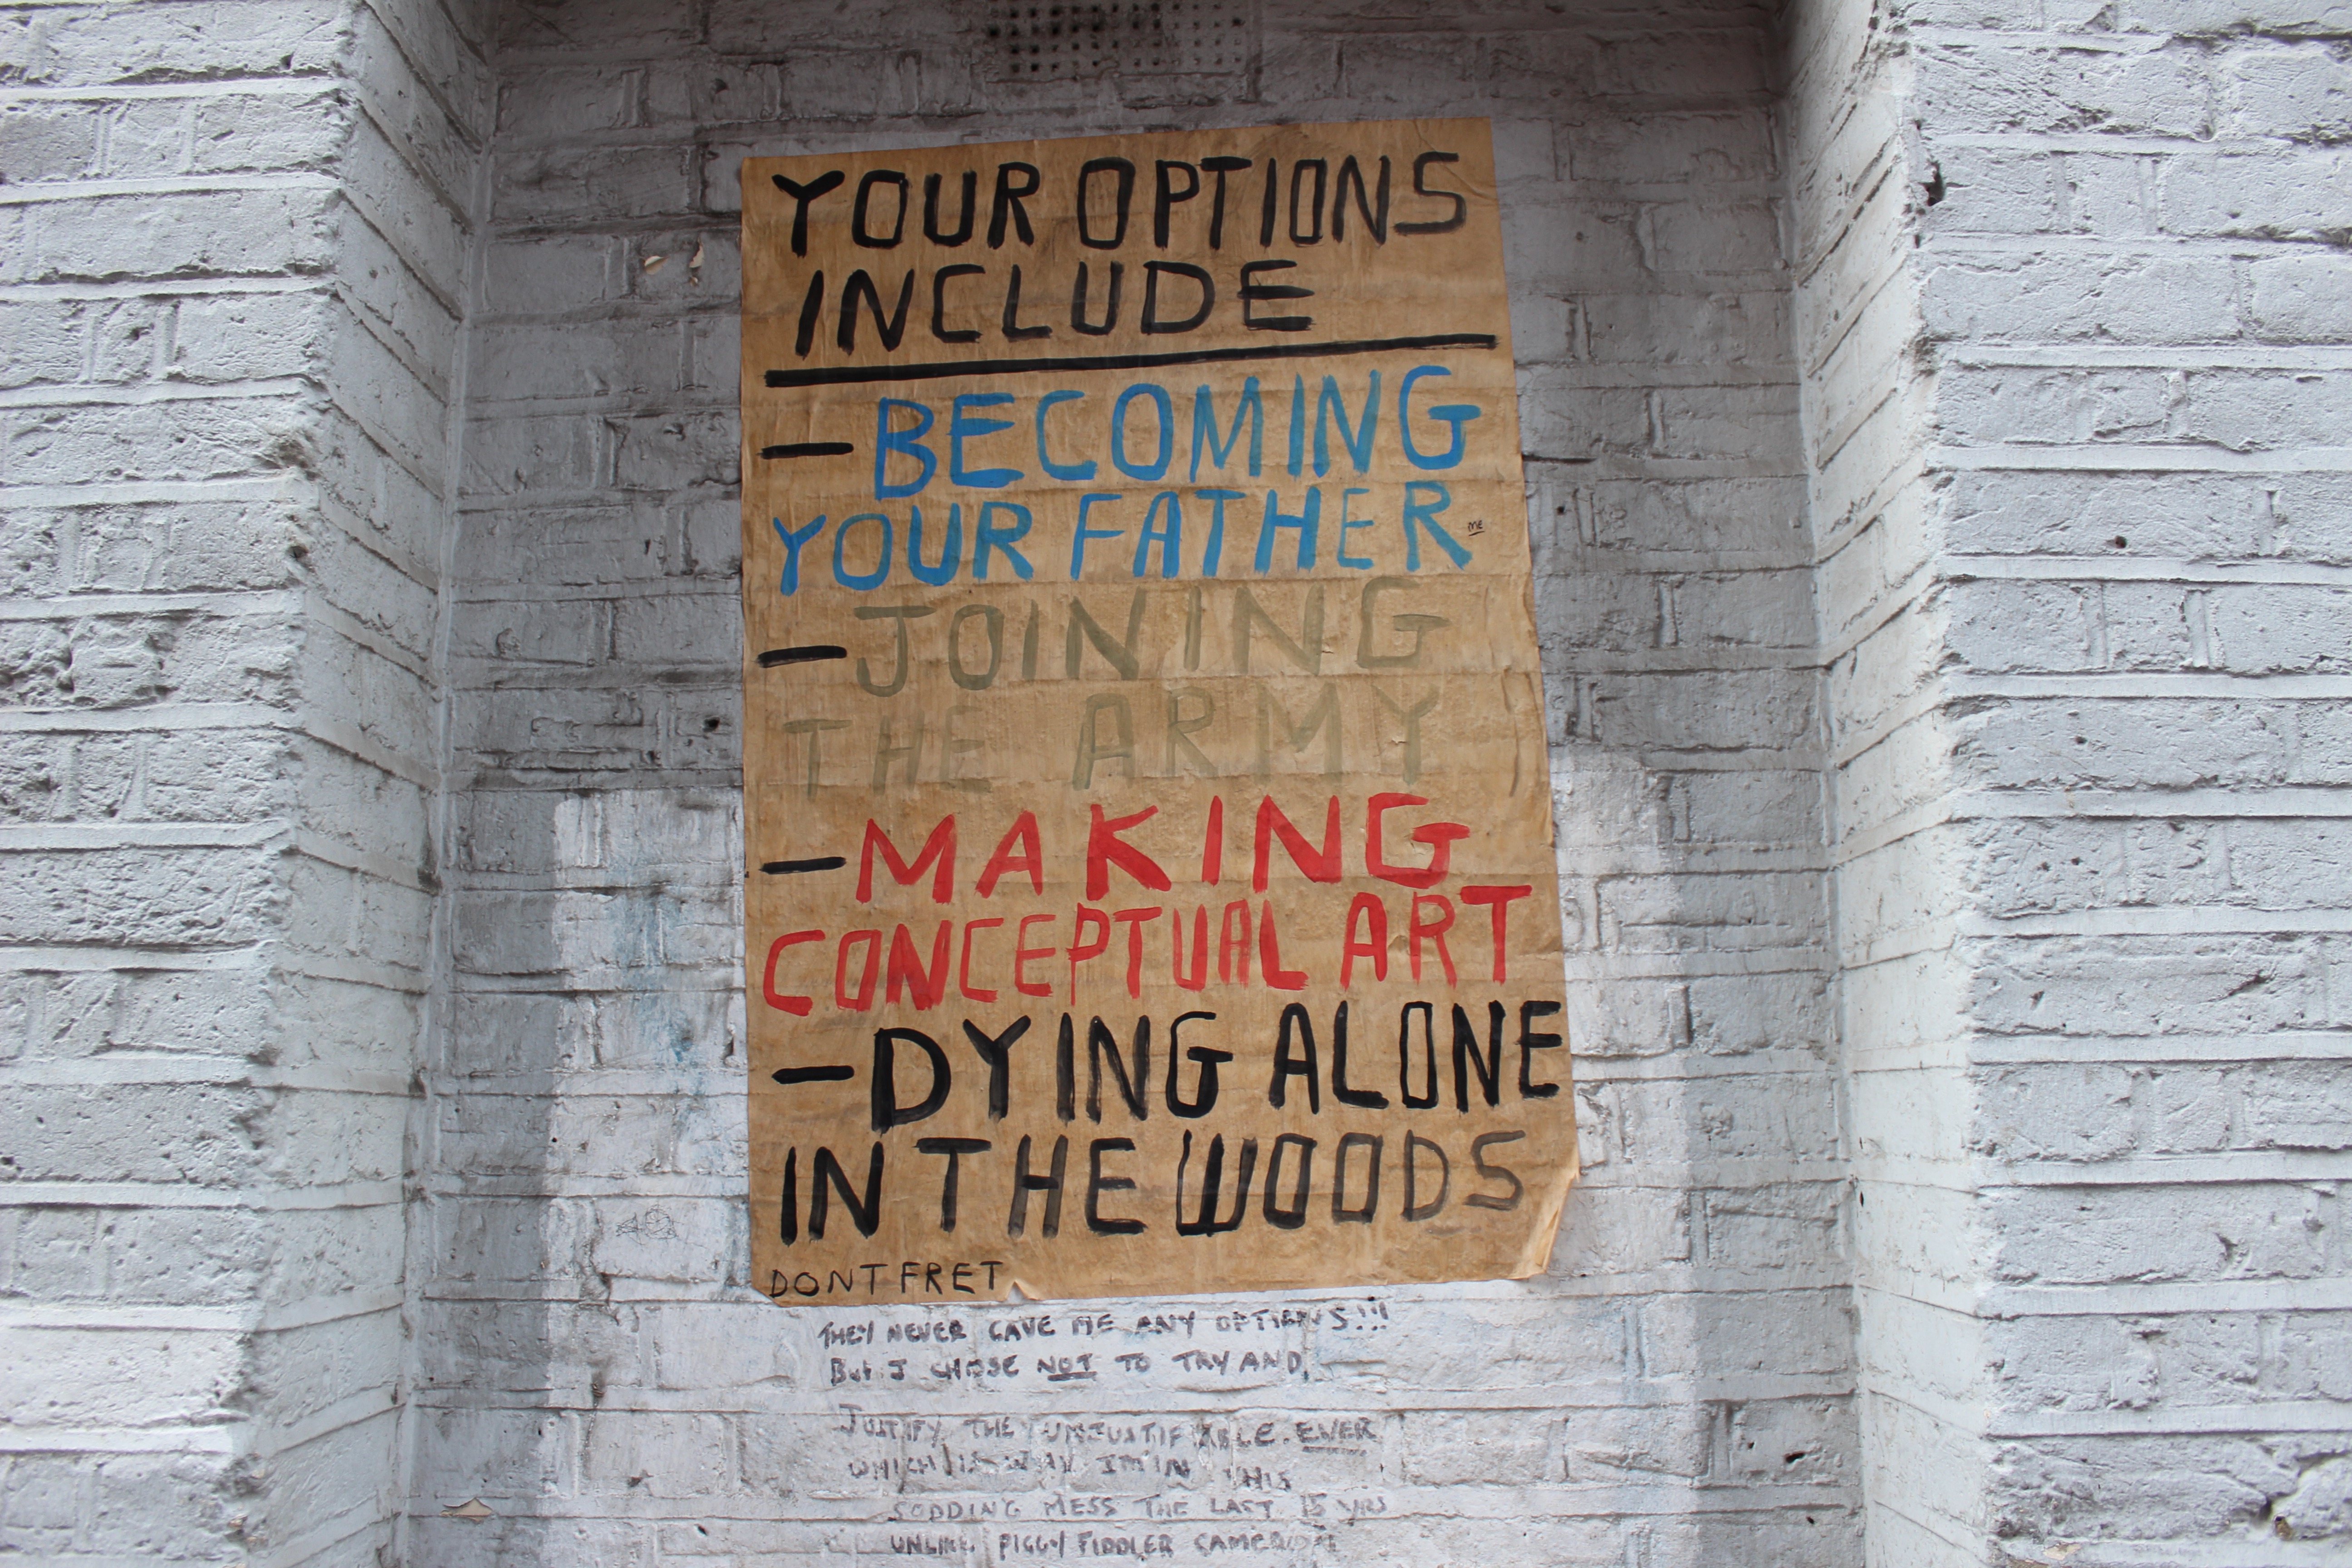 YOUR OPTIONS
INCLUDE
–BECOMING
YOUR FATHER
ME
–JOINING
THE ARMY
–MAKING
CONCEPTUAL ART
–DYING ALONE
IN THE WOODS
DONT FRET
THEY NEVER GAVE ME ANY OPTIONS!!!
BUT I CHOSE NOT TO TRY AND,
JUSTIFY THE UNJUSTIFIABLE. EVER
WHICH IS WHY IM IN THIS
SODDING MESS THE LAST 15 YRS
UNLIKE PIGGY FIDDLER